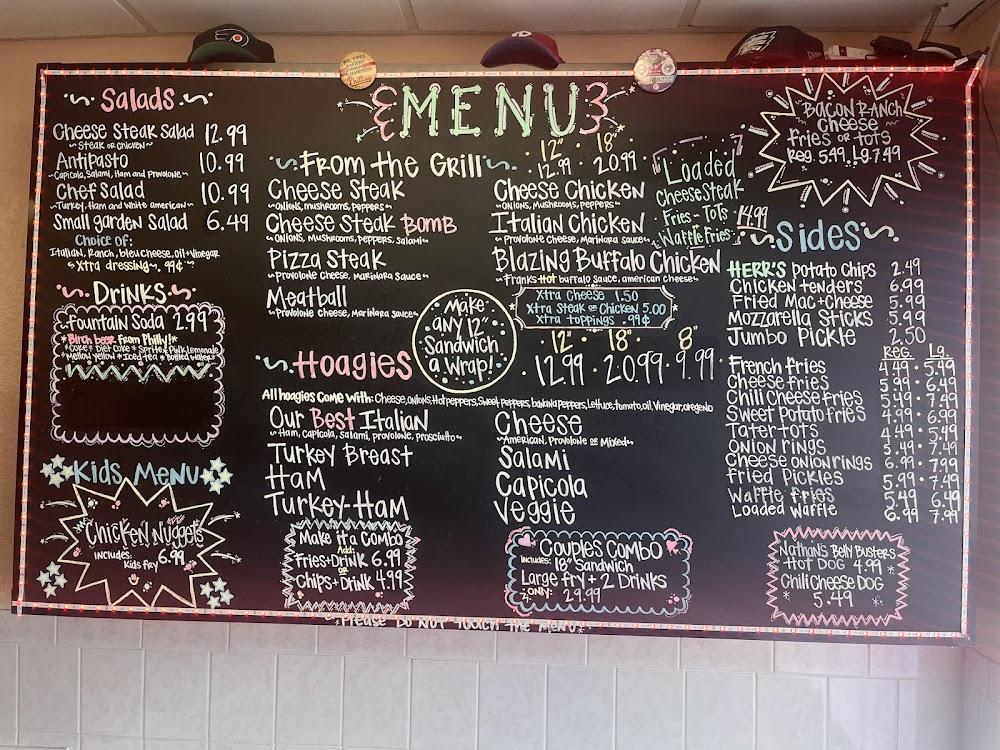 MENU
Salads
Cheese Steak Salad 12.99
~Steak or Chicken~
Antipasto 10.99
~Capicola, Salami, Ham and Provolone~
Chef Salad 10.99
~Turkey, Ham and White American~
Small garden Salad 6.49
Choice of:
Italian, Ranch, bleu cheese, oil+Vinegar
Xtra dressing~. 99¢
Drinks
Fountain Soda 2.99
*Birch beer from Philly!*
*Coke*Diet Coke*Sprite*Pink Lemonade
*Mellow Yellow*Iced tea*Bottled Water*
Kids Menu
Chicken Nuggets
Includes: 6.99
Kids fry
From the Grill
12" · 18"
12.99 · 20.99
Cheese Steak
~Onions, mushrooms, peppers~
Cheese Steak Bomb
~Onions, Mushrooms, Peppers, Salami~
Pizza Steak
~Provolone Cheese, Marinara Sauce~
Meatball
Provolone Cheese, Marinara Sauce~
Cheese Chicken
~Onions, Mushrooms, Peppers~
Italian Chicken
~Provolone Cheese, Marinara Sauce~
Blazing Buffalo Chicken
~Franks Hot buffalo Sauce, american cheese~
Xtra Cheese 1.50
Xtra Steak or Chicken 5.00
Xtra toppings .99¢
Make
any 12"
Sandwich
a Wrap!
Hoagies
12" · 18" · 8"
12.99 · 20.99 · 9.99
All hoagies Come with: Cheese, onions, Hot peppers, Sweet peppers, banana peppers, Lettuce, tomato, oil, Vinegar, oregeno
Our Best Italian
~Ham, Capicola, Salami, provolone, prosciutto~
Turkey Breast
Ham
Turkey-Ham
Cheese
~American, Provolone or Mixed~
Salami
Capicola
Veggie
Make it a Combo
Add:
Fries+Drink 6.99
or
Chips+Drink 4.99
Couples Combo
Includes: 18" Sandwich
Large fry + 2 Drinks
~Only: 29.99
Loaded
Cheese Steak
Fries ~ Tots 14.99
Waffle Fries
Bacon Ranch
Cheese
fries or tots
Reg. 5.49 Lg 7.49
Sides
Herr's Potato Chips 2.49
Chicken tenders 6.99
Fried Mac+Cheese 5.99
Mozzarella Sticks 5.99
Jumbo Pickle 2.50
Reg. Lg.
French fries 4.49 · 5.49
Cheese fries 5.99 · 6.49
Chili Cheese fries 5.49 · 7.49
Sweet Potato fries 4.99 · 6.99
Tater tots 4.49 · 5.49
Onion rings 5.49 · 7.49
Cheese onion rings 6.99 · 7.99
fried Pickles 5.99 · 7.49
Waffle fries 5.49 6.49
Loaded Waffle 6.99 7.99
Nathan's Belly Busters
Hot Dog 4.99
Chili Cheese Dog
5.49
*Please Do Not Touch the Menu*